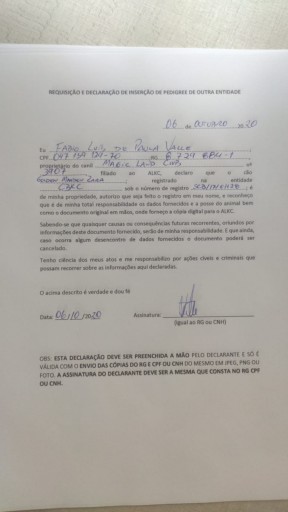 REQUISIÇÃO E DECLARAÇÃO DE INSERÇÃO DE PEDIGREE DE OUTRA ENTIDADE
06 de OUTUBRO de 2020
Eu FABIO LUIS DE PAULA VALLE
CPF RG
proprietário do canil MAGIC LAND nº
3907 filiado ao ALKC, declaro que o cão
registrado na entidade
CBKC sob o número de registro e
de minha propriedade, autorizo que seja feito o registro em meu nome, e reconheço
que é de minha total responsabilidade os dados fornecidos e a posse do animal bem
como o documento original em mãos, onde forneço a cópia digital para o ALKC.
Sabendo-se que quaisquer causas ou consequências futuras recorrentes, oriundos por
informações deste documento fornecido, serão de minha responsabilidade. E que ainda,
caso ocorra algum desencontro de dados fornecidos o documento poderá ser
cancelado.
Tenho ciência dos meus atos e me responsabilizo por ações cíveis e criminais que
possam recorrer sobre as informações aqui declaradas.
O acima descrito é verdade e dou fé
Data: 06/10/2020 Assinatura:
(Igual ao RG ou CNH)
OBS: ESTA DECLARAÇÃO DEVE SER PREENCHIDA A MÃO PELO DECLARANTE E SÓ É
VÁLIDA COM O ENVIO DAS CÓPIAS DO RG E CPF OU CNH DO MESMO EM JPEG, PNG OU
FOTO. A ASSINATURA DO DECLARANTE DEVE SER A MESMA QUE CONSTA NO RG CPF
OU CNH.